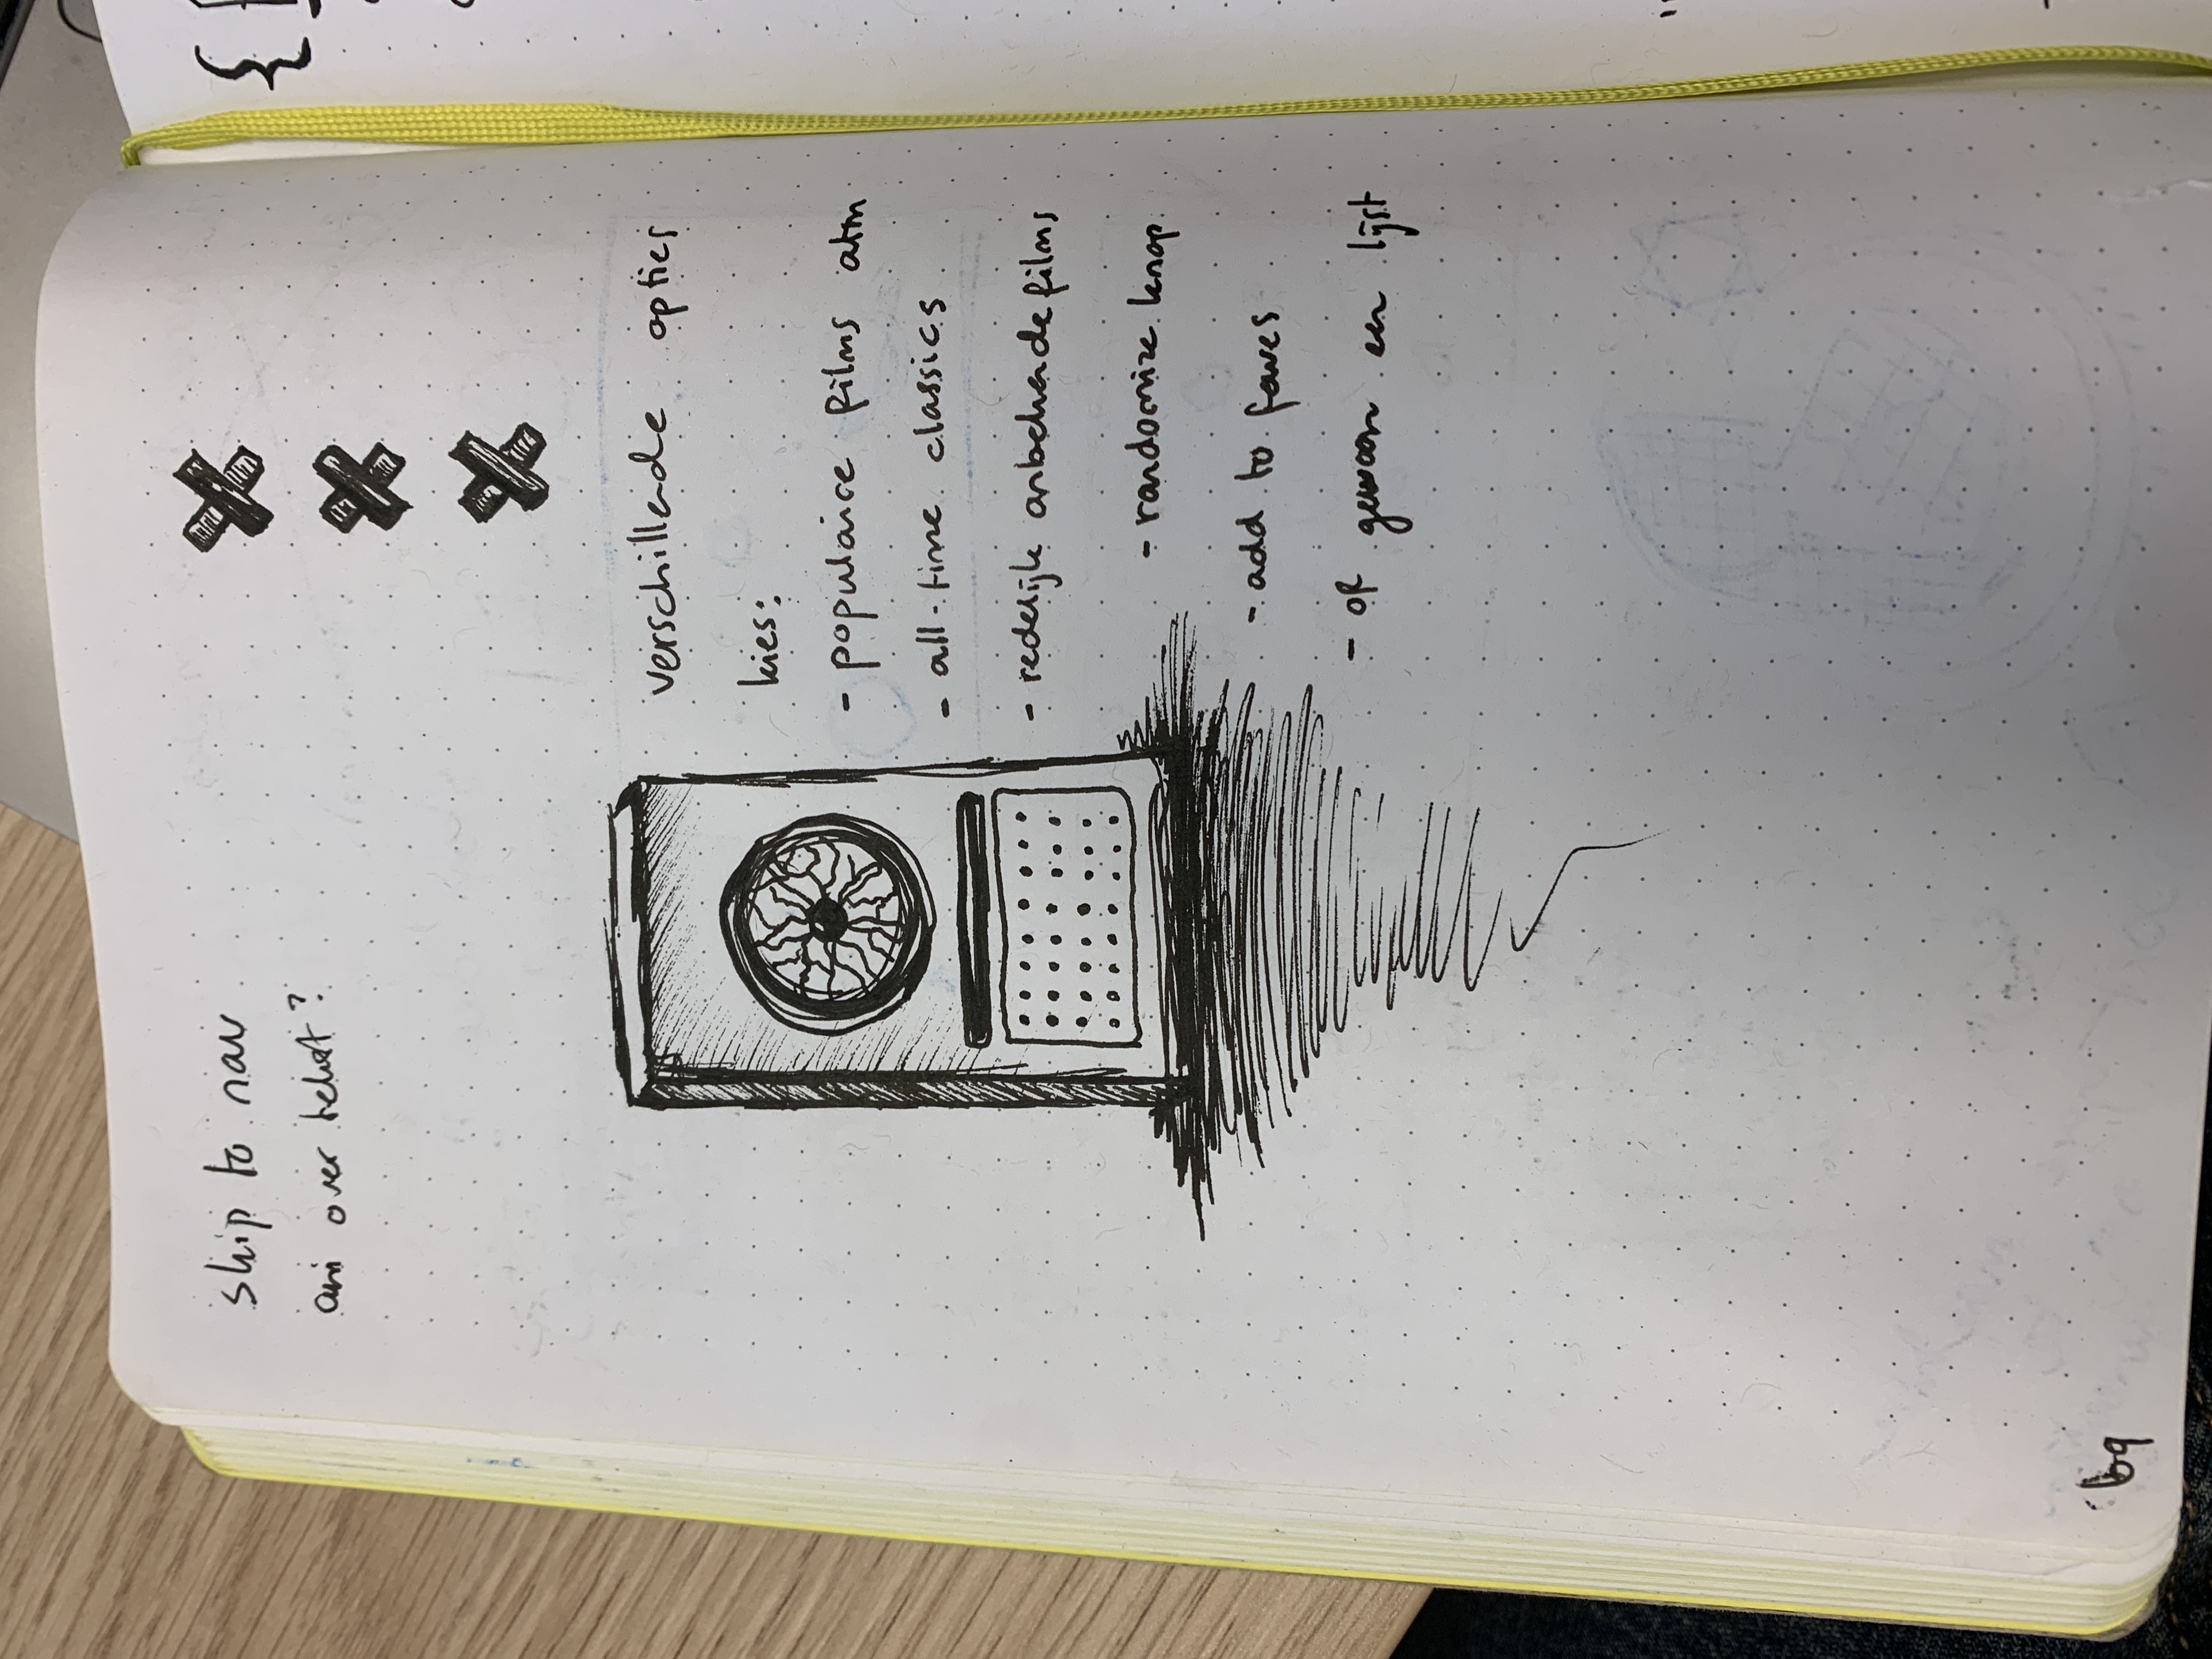 skip to nav
ani over tekst?
verschillende opties
kies:
- populaire films atm
- all-time classics
- redelijk onbekende films
- randomize knop
- add to faves
- of gewoon een lijst
69
{